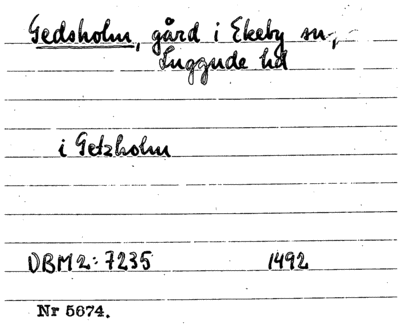 Gedsholm, gård i Ekeby sn,
Luggude hd
i Getzholm
DBM2:7235 1492
Nr 5674.